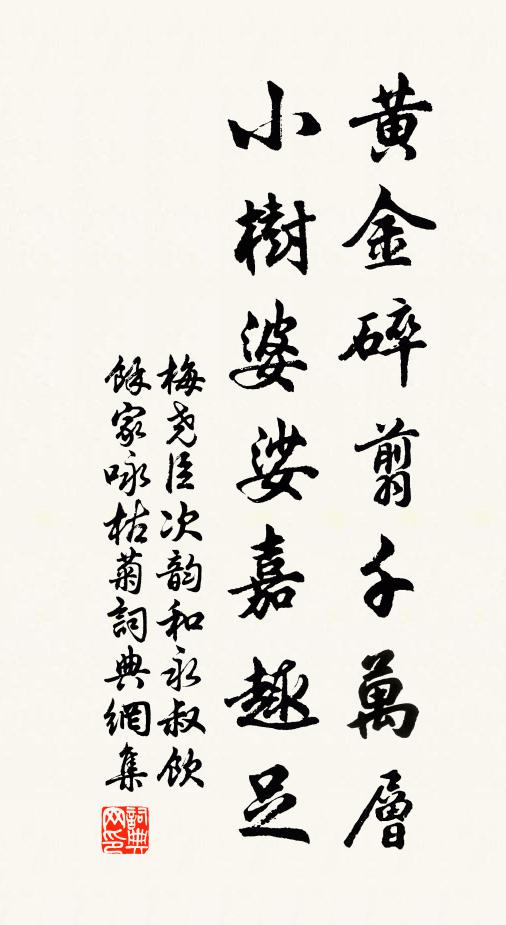 黃金碎翦千萬層
小樹婆娑嘉趣足
梅堯臣次韵和永叔飲
餘家咏枯菊詞典網集
詞典網印